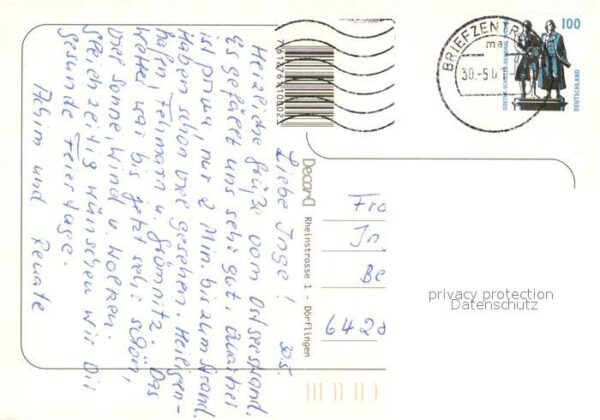 30.5.
Liebe Inge!
Herzliche Grüße vom Ostseestrand.
Es gefällt uns sehr gut. Quartier
ist prima, nur 2 Min. bis zum Strand.
Haben schon viel gesehen. Heiligen-
hafen, Fehmarn u. Grömnitz. Das
Wetter war bis jetzt sehr schön,
viel Sonne, Wind u. Wolken.
Gleichzeitig wünschen wir Dir
gesunde Feiertage.
Achim und Renate
Decord Rheinstrasse 1 - Dörflingen
BRIEFZENTR
ma
30.-5
100
DEUTSCHLAND
Fr
In
Be
6428
privacy protection
Datenschutz